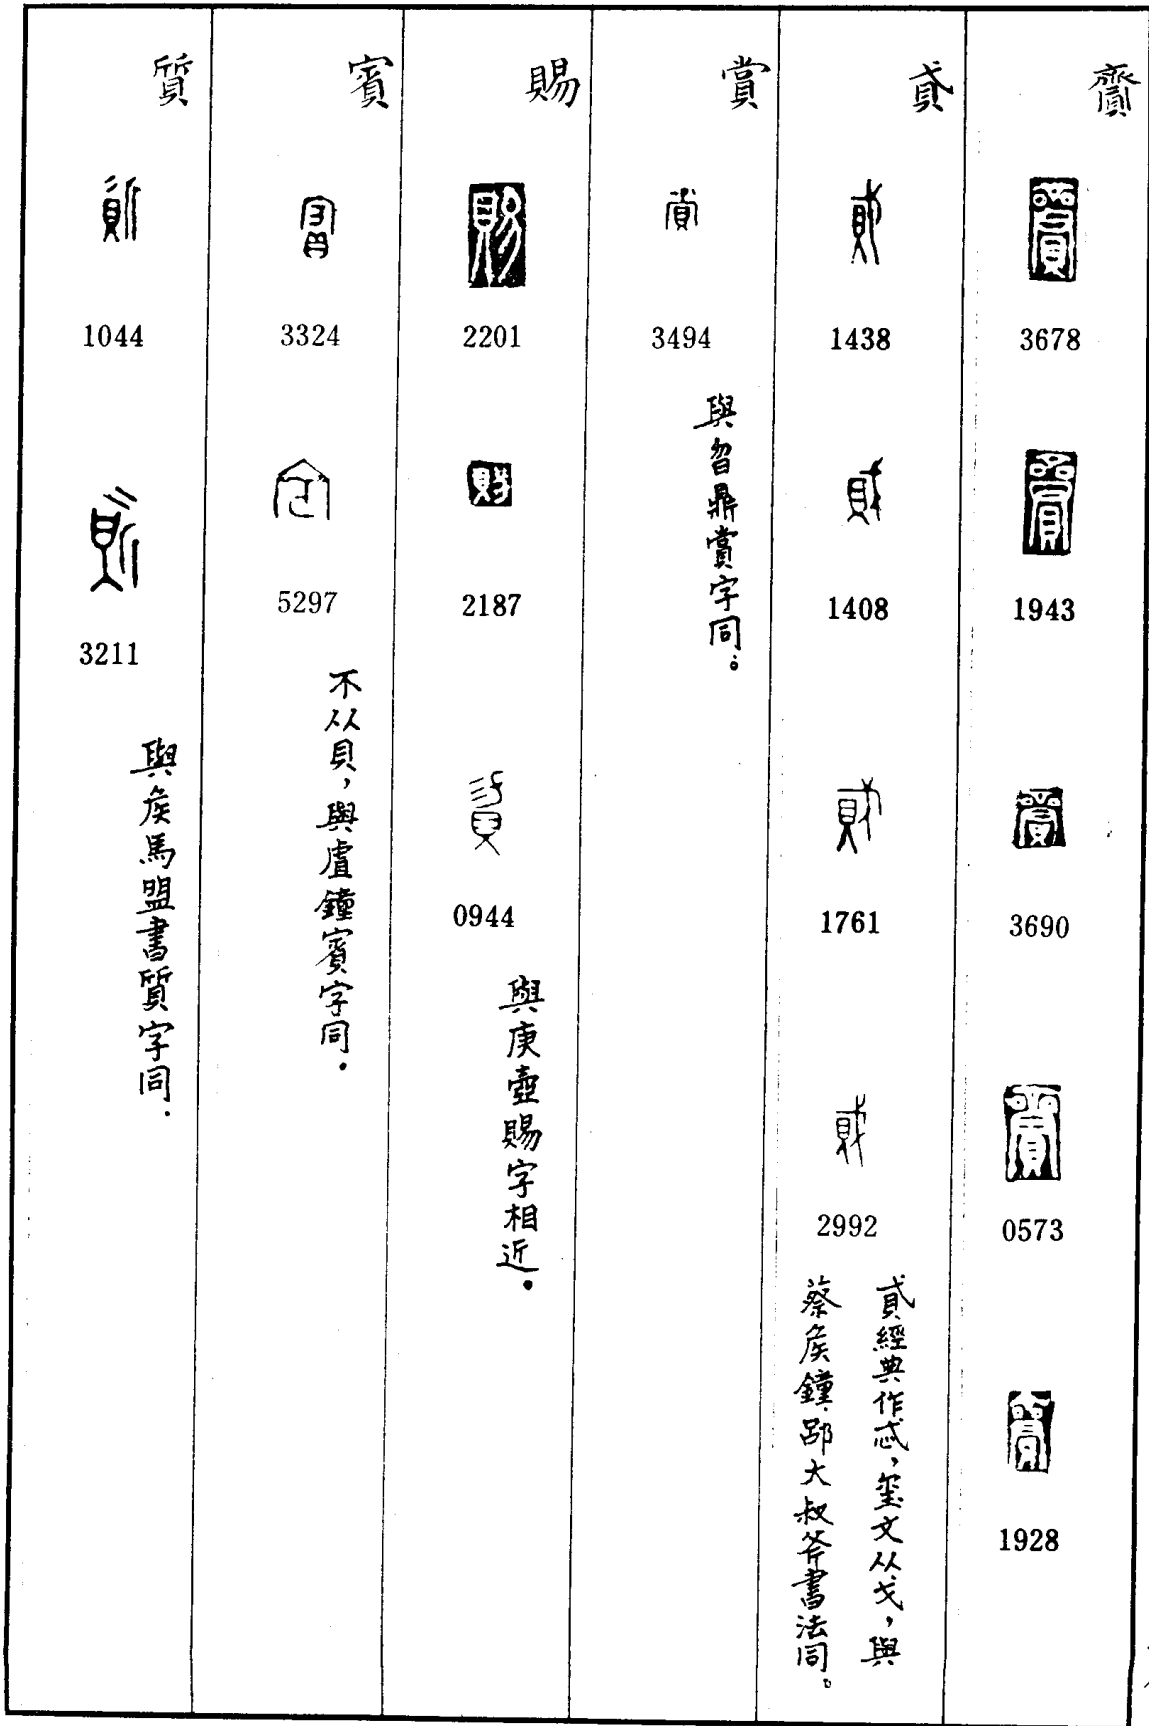 齎
3678
1943
3690
0573
1928
貣
1438
1408
1761
2992
貣經典作忒，璽文从戈，與
蔡侯鐘、郘大叔斧書法同。
賞
3494
與曶鼎賞字同。
賜
2201
2187
0944
與庚壺賜字相近。
賓
3324
5297
不从貝，與虘鐘賓字同。
質
1044
3211
與侯馬盟書質字同。